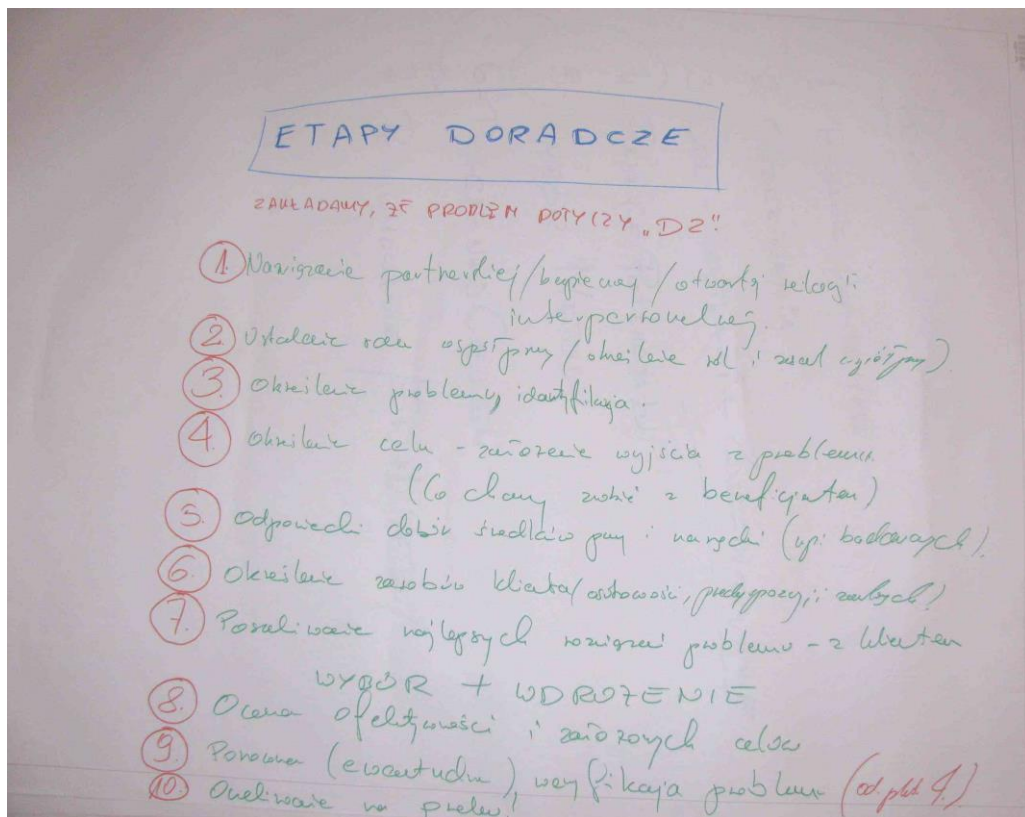 ETAPY DORADCZE
ZAKŁADAMY, ŻE PROBLEM DOTYCZY „DZ”.
1. Nawiązanie partnerskiej/bezpiecznej/otwartej relacji
interpersonalnej.
2. Ustalenie współpracy/określenie ról i zasad współpracy)
3. Określenie problemu, identyfikacja.
4. Określenie celu - założenie wyjścia z problemu.
(Co chcemy zrobić z beneficjentem)
5. Odpowiedni dobór środków pracy i narzędzi (np: badawczych).
6. Określenie zasobów klienta/osobowości, predyspozycji
7. Poszukiwanie najlepszych rozwiązań problemu - z klientem
WYBÓR + WDROŻENIE
8. Ocena efektywności i założonych celów
9. Ponowna (ewentualna), weryfikacja problemu (od pkt 4.)
10. Oczekiwanie na